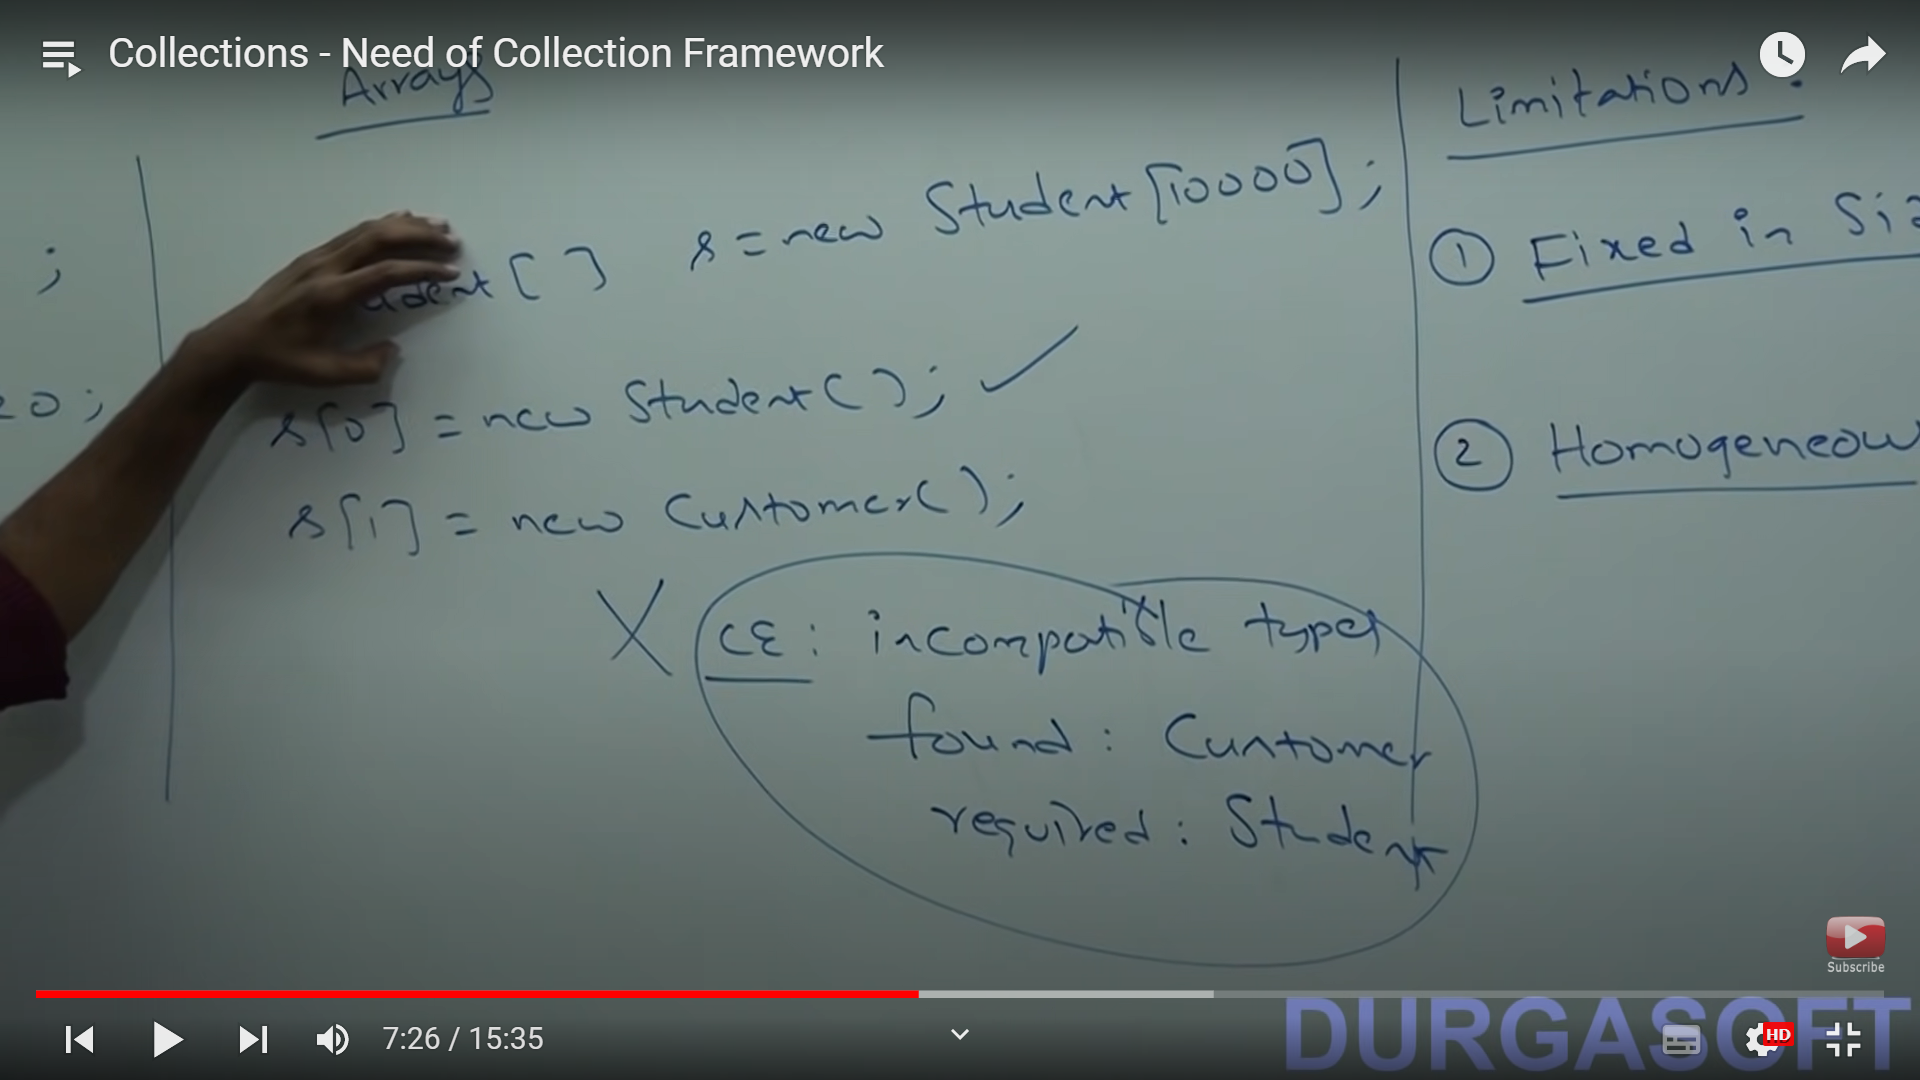 Collections - Need of Collection Framework
Arrays
;
20;
[ ] s = new Student[10000];
s[0] = new Student( ); ✓
s[1] = new Customer( );
X CE: incompatible types
found: Customer
required: Student
Limitations:
① Fixed in
② Homogeneous
Subscribe
7:26 / 15:35
HD
DURGASOFT